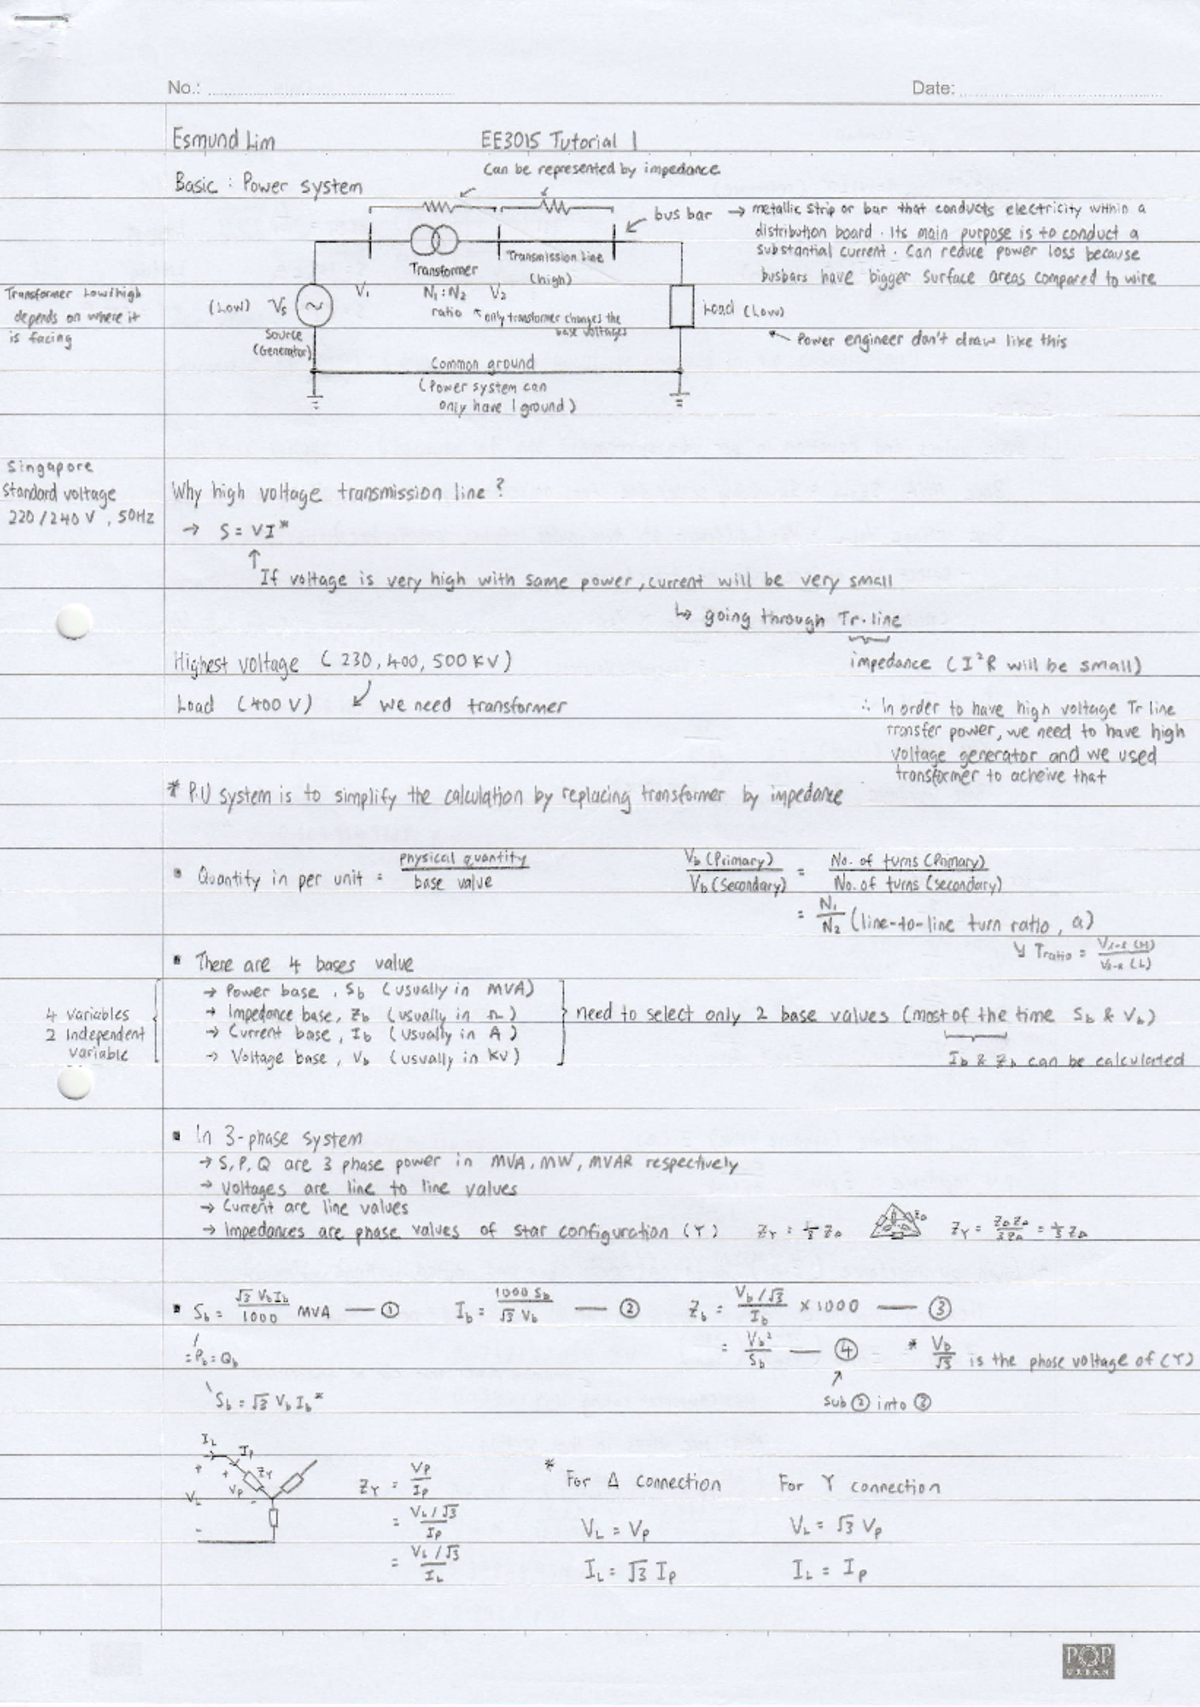 No.:
Date:
Esmund Lim
EE3015 Tutorial 1
Basic : Power system
Can be represented by impedance
bus bar → metallic strip or bar that conducts electricity within a
distribution board. Its main purpose is to conduct a
substantial current. Can reduce power loss because
busbars have bigger surface areas compared to wire
Transformer
Transmission Line
(high)
Transformer Low/high
depends on where it
is facing
(Low) Vs ~
Source
(Generator)
V₁
N₁:N₂
ratio
V₂
only transformer changes the
base voltages
Load (Low)
Power engineer don't draw like this
Common ground
(Power system can
only have 1 ground)
Singapore
Standard voltage
220/240 V, 50Hz
Why high voltage transmission line?
→ S = VI*
↑
If voltage is very high with same power, current will be very small
↳ going through Tr. line
impedance (I²R will be small)
Highest voltage (230, 400, 500 KV)
Load (400 V) ↙ we need transformer
∴ In order to have high voltage Tr line
transfer power, we need to have high
voltage generator and we used
transformer to acheive that
* P.U system is to simplify the calculation by replacing transformer by impedance
▪ Quantity in per unit = physical quantity / base value
Vb (Primary) / Vb (Secondary) = No. of turns (Primary) / No. of turns (secondary)
= N₁/N₂ (line-to-line turn ratio, a)
↘ Tratio = VL-L (H) / VL-L (L)
▪ There are 4 bases value
→ Power base, Sb (usually in MVA)
→ Impedance base, Zb (usually in Ω)
→ Current base, Ib (usually in A)
→ Voltage base, Vb (usually in KV)
4 variables
2 Independent
variable
need to select only 2 base values (most of the time Sb & Vb)
Ib & Zb can be calculated
▪ In 3-phase system
→ S, P, Q are 3 phase power in MVA, MW, MVAR respectively
→ Voltages are line to line values
→ Current are line values
→ Impedances are phase values of star configuration (Y)
ZY = 1/3 ZΔ
ZΔ
ZY = ZΔ ZΔ / 3ZΔ = 1/3 ZΔ
▪ Sb = √3 Vb Ib / 1000 MVA — ①
Ib = 1000 Sb / √3 Vb — ②
Zb = Vb/√3 / Ib × 1000 — ③
= Pb = Qb
= Vb² / Sb — ④
* Vb/√3 is the phase voltage of (Y)
Sb = √3 Vb Ib*
↑
Sub ② into ③
IL
IP
ZY
+
+
VP
-
VL
-
ZY = VP / IP
= VL/√3 / IP
= VL/√3 / IL
* For Δ connection
VL = VP
IL = √3 IP
For Y connection
VL = √3 VP
IL = IP
POP
URBAN